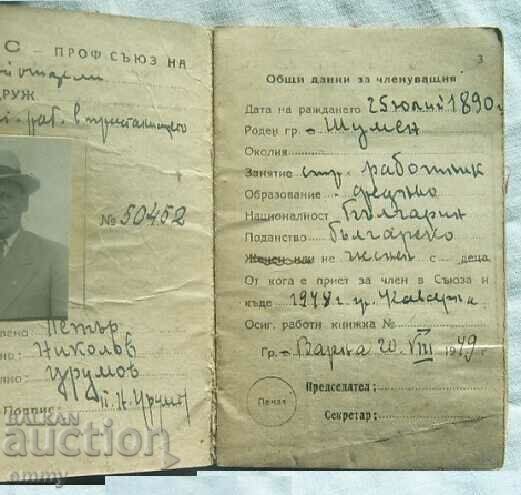 С – ПРОФ СЪЮЗ НА
ДРУЖ
раб. в пристанището
№ 50452
Петър
Николов
Урумов
Подпис
3
Общи данни за членуващия
Дата на раждането 25 юлий 1890 г.
Роден гр. Шумен
Околия
Занятие стр. работник
Образование средно
Националност България
Поданство българско
Женен или не женен с деца
От кога е приет за член в Съюза и
къде 1948 г. гр. Каварна
Осиг. работи книжка №
Гр. Варна 20. VIII 1949 г.
Председател:
Печат
Секретар:
BALKAN
auction
emmy